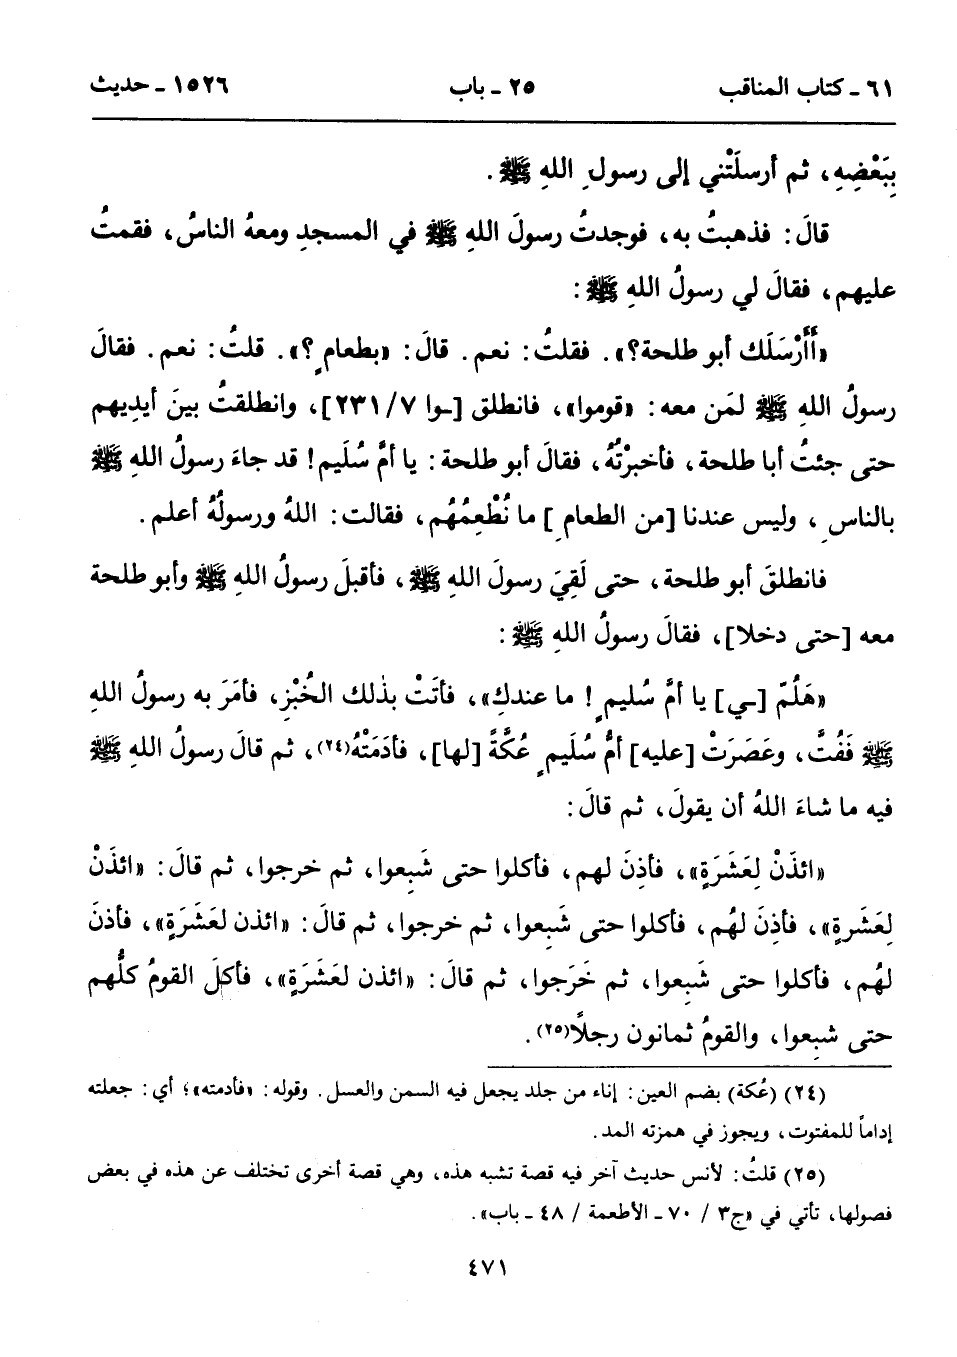 ٦١ ـ كتاب المناقب ٢٥ ـ باب ١٥٢٦ ـ حديث
بِبَعْضِهِ، ثم أرسلَتْني إلى رسولِ اللهِ ﷺ.
قالَ: فذهبتُ به، فوجدتُ رسولَ اللهِ ﷺ في المسجدِ ومعهُ الناسُ، فقمتُ
عليهم، فقالَ لي رسولُ اللهِ ﷺ:
«أَأَرْسَلَك أبو طلحة؟». فقلتُ: نعم. قالَ: «بطعامٍ؟». قلتُ: نعم. فقالَ
رسولُ اللهِ ﷺ لمَن معه: «قوموا»، فانطلق [ـوا ٢٣١/٧]، وانطلقتُ بينَ أيدِيهم
حتى جئتُ أبا طلحة، فأخبرْتُهُ، فقالَ أبو طلحة: يا أمَّ سُلَيم! قد جاءَ رسولُ اللهِ ﷺ
بالناسِ، وليس عندنا [من الطعامِ] ما نُطْعِمُهُم، فقالت: اللهُ ورسولُهُ أعلم.
فانطلقَ أبو طلحة، حتى لَقِيَ رسولَ اللهِ ﷺ، فأقبلَ رسولُ اللهِ ﷺ وأبو طلحة
معه [حتى دخلا]، فقالَ رسولُ اللهِ ﷺ:
«هَلُمّ [ـي] يا أمَّ سُليمٍ! ما عندكِ»، فأتَتْ بذٰلك الخُبْزِ، فأمَرَ به رسولُ اللهِ
ﷺ فَفُتَّ، وعَصَرَتْ [عليه] أمُّ سُلَيمٍ عُكَّةً [لها]، فأدَمَتْهُ(٢٤)، ثم قالَ رسولُ اللهِ ﷺ
فيه ما شاءَ اللهُ أن يقولَ، ثم قالَ:
«ائذَنْ لِعَشَرَةٍ»، فأذِنَ لهم، فأكلوا حتى شَبِعوا، ثم خرجوا، ثم قالَ: «ائذَنْ
لِعَشَرةٍ»، فأذِنَ لهُم، فأكلوا حتى شَبِعوا، ثم خرجوا، ثم قالَ: «ائذن لعَشَرَةٍ»، فأذنَ
لهُم، فأكلوا حتى شَبِعوا، ثم خَرَجوا، ثم قالَ: «ائذن لعَشَرَةٍ»، فأكلَ القومُ كلُّهم
حتى شبِعوا، والقومُ ثمانون رجلًا(٢٥).
(٢٤) (عُكة) بضم العين: إناء من جلد يجعل فيه السمن والعسل. وقوله: «فأدمته»؛ أي: جعلته
إداماً للمفتوت، ويجوز في همزته المد.
(٢٥) قلتُ: لأنس حديث آخر فيه قصة تشبه هذه، وهي قصة أخرى تختلف عن هذه في بعض
فصولها، تأتي في «ج٣ / ٧٠ ـ الأطعمة / ٤٨ ـ باب».
٤٧١